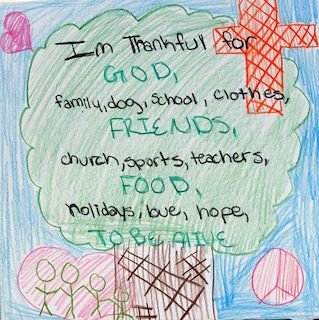 Im Thankful for
GOD,
family, dog, school, clothes,
FRIENDS,
church, sports, teachers,
FOOD,
holidays, love, hope,
TO BE ALIVE